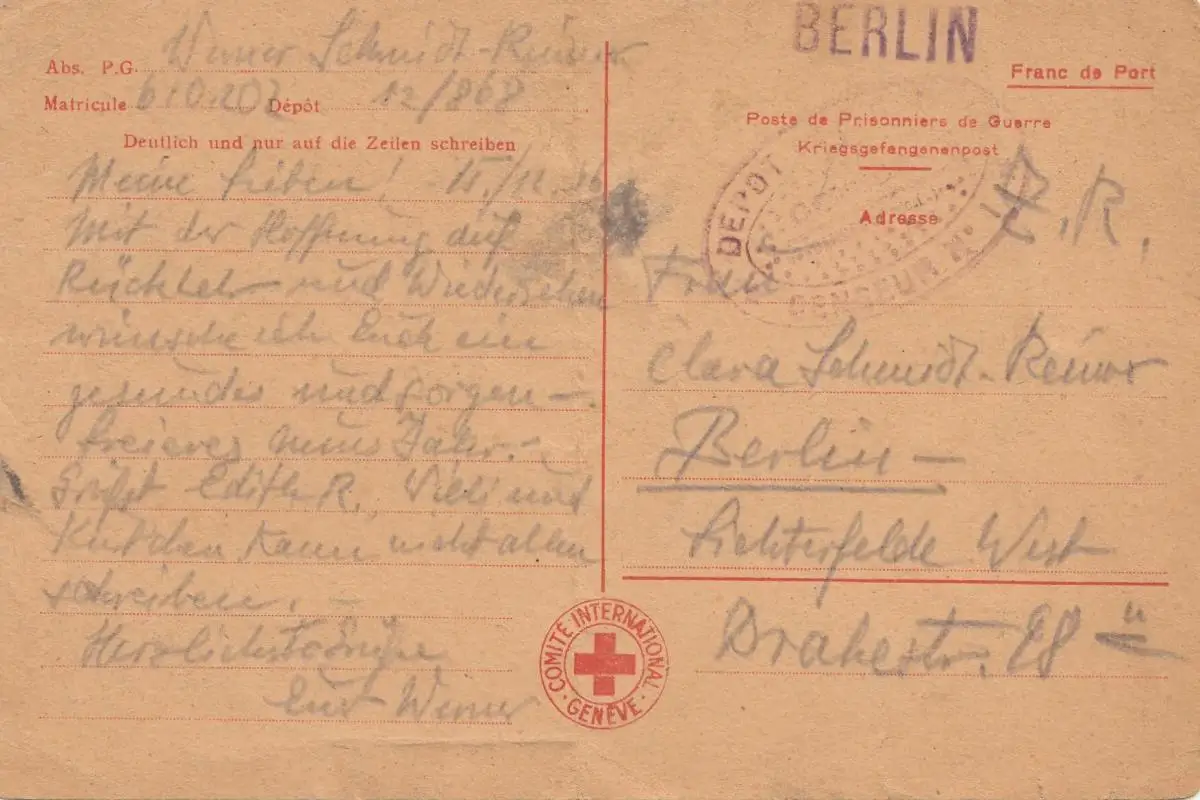 Abs. P.G. Werner Schmidt-Reiner
Matricule 610.202 Dépôt 12/868
Deutlich und nur auf die Zeilen schreiben
Meine Lieben! 15./12.
Mit der Hoffnung auf
Rückkehr und Wiedersehen
wünsche ich Euch ein
gesundes und sorgen-
freieres neues Jahr.-
Grüßt Edith R., Willi und
Kurtchen kann nicht allen
schreiben. -
Herzlichst Grüße
Euer Werner
BERLIN
Franc de Port
Poste de Prisonniers de Guerre
Kriegsgefangenenpost
DEPOT
CENSEUR N.
Adresse
R.
Frau
Clara Schmidt-Reiner
Berlin -
Lichterfelde West
Drakestr. 28 II
COMITÉ INTERNATIONAL · GENÈVE ·